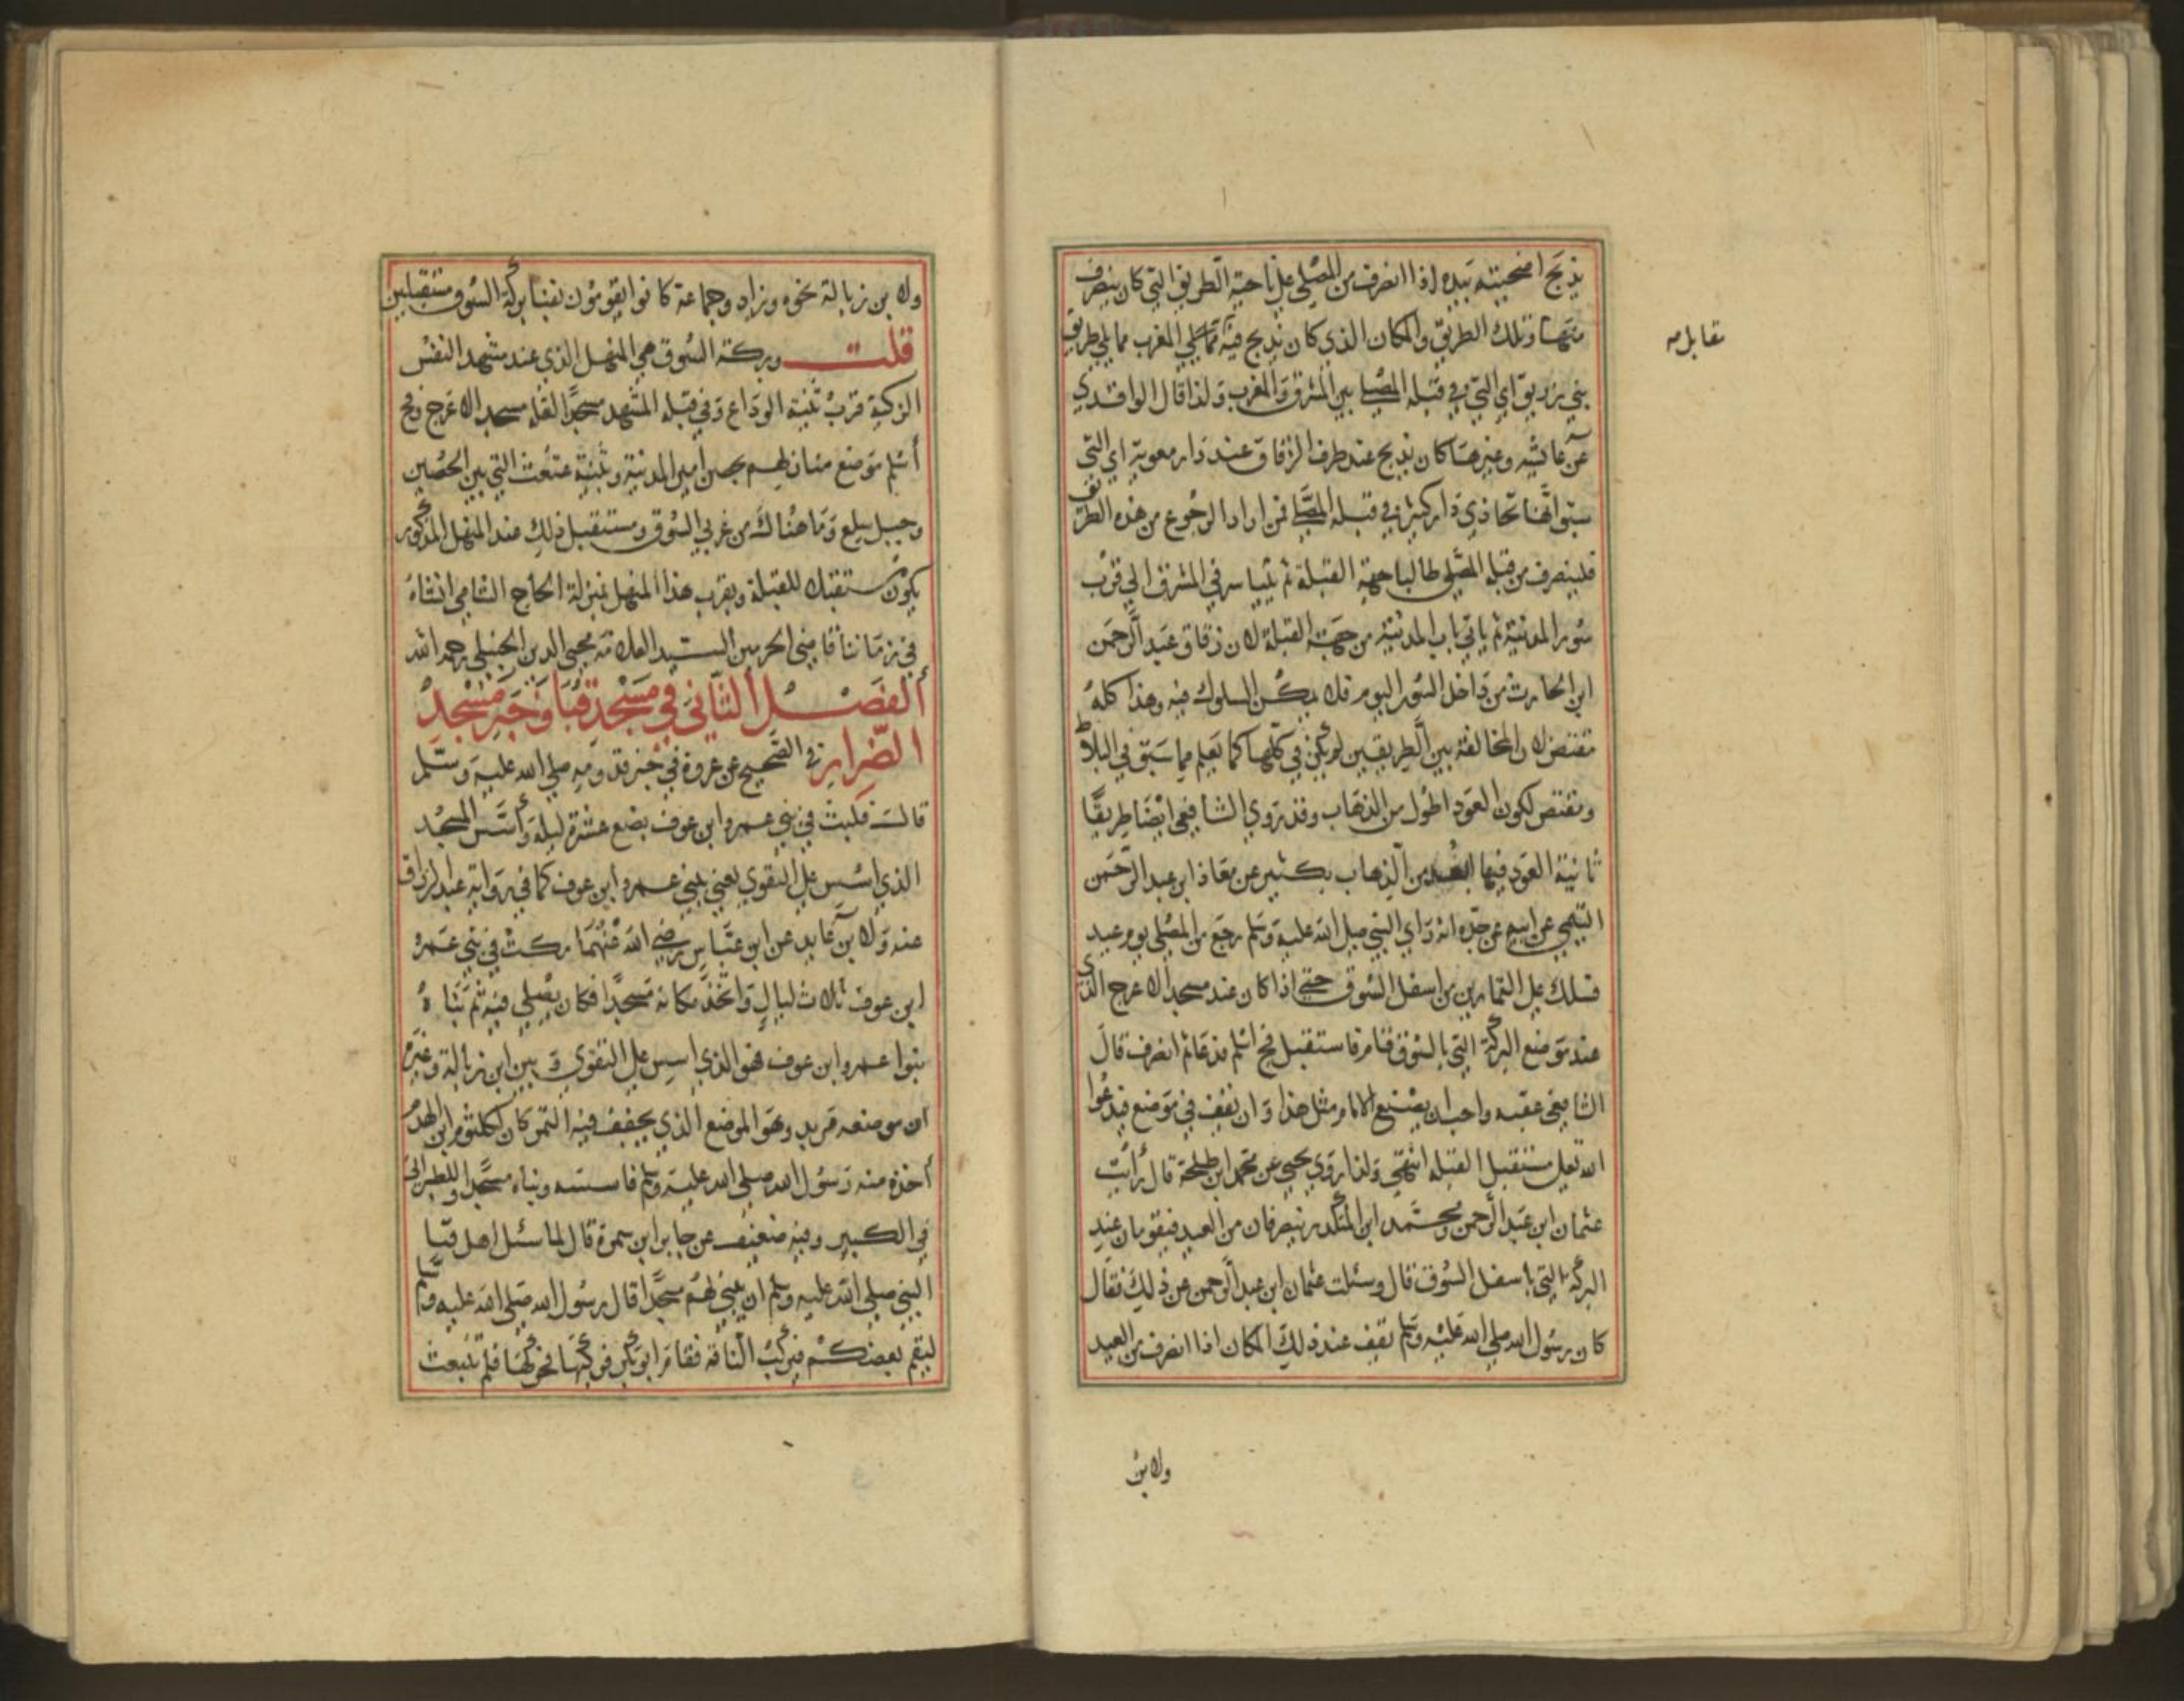 يذبح اضحيته بيده اذا انصرف من المصلى على ناحية الطريق التي كان ينصرف
منها وتلك الطريق والمكان الذي كان يذبح فيه مما يلي المغرب مما يلي طريق
بني زريق اي التي في قبلة المصلى بين المشرق والمغرب ولذا قال الواقدي
عن عائشه وغيرها كان يذبح عند طرف الزقاق عند دار معوية اي التي
سبق انها تحاذي دار كثير في قبلة المصلى فمن اراد الرجوع من هذه الطريق
فلينصرف من قبلة المصلى طالبا جهة القبلة ثم يتياسر في المشرق الى قرب
سور المدينة ثم ياتي باب المدينة من جهة القبلة لان زقاق عبد الرحمن
ابن الحارث من داخل السور اليوم فلا يمكن السلوك فيه وهذا كله
مقتض لان المخالفة بين الطريقين لم يكن في كلها كما يعلم مما سبق في البلاط
ومقتض لكون العود اطول من الذهاب وقد روي الشافعي ايضا طريقا
ثانية العود فيها ابعد من الذهاب بكثير عن معاذ ابن عبد الرحمن
التيمي عن ابيه عن جده انه راي النبي صلى الله عليه وسلم رجع من المصلى يوم عيد
فسلك على التمارين من اسفل السوق حتى اذا كان عند مسجد الاعرج الذي
عند موضع البركة التي بالسوق قام فاستقبل فج اسلم فدعا ثم انصرف قال
الشافعي عقبه واحب ان يصنع الامام مثل هذا وان يقف في موضع فيدعوا
الله تعلى مستقبل القبله انتهى ولذا روي يحيى عن محمد ابن طلحة قال رايت
عثمان ابن عبد الرحمن ومحمد ابن المنكدر ينصرفان من العيد فيقومان عند
البركة التي باسفل السوق قال وسئلت عثمان ابن عبد الرحمن عن ذلك فقال
كان رسول الله صلى الله عليه وسلم يقف عند ذلك المكان اذا انصرف من العيد
تقابل مه
ولابن
ولابن زبالة نحوه وزاد وجماعة كانوا يقومون بفنا بركة السوق مستقبلين
قلت وبركة السوق هي المنهل الذي عند مشهد النفس
الزكية قرب ثنية الوداع وفي قبلة المشهد مسجد لعله مسجد الاعرج وفج
أسلم موضع منازلهم بحصن أمير المدينة وثنية عثعث التي بين الحصين
وجبل سلع وما هناك من غربي السوق ومستقبل ذلك عند المنهل المذكور
يكون مستقبلا للقبلة وبقرب هذا المنهل بمنزلة الحاج الشامي انشاء
في زماننا قاضي الحرمين السيد العلامة محيى الدين الحنبلي رحمه الله
الفصل الثاني في مسجد قبا وخبر مسجد
الضرار في الصحيح عن عروة في خبر قدومه صلى الله عليه وسلم
قالت فلبث في بني عمرو ابن عوف بضع عشرة ليلة وأسس المسجد
الذي اسس على التقوي يعني بني عمرو ابن عوف كما في رواية عبد الرزاق
عنه ولابن عايد عن ابن عباس رضي الله عنهما مكث في بني عمرو
ابن عوف ثلاث ليال واتخذ مكانه مسجدا فكان يصلى فيه ثم بناه
بنوا عمرو ابن عوف فهو الذي اسس على التقوي وبين ابن زبالة وغيره
ان موضعه مربد وهو الموضع الذي يجفف فيه التمر كان لكلثوم ابن الهدم
أخذه منه رسول الله صلى الله عليه وسلم فاسسه وبناه مسجدا وللطبراني
في الكبير وفيه ضعيف عن جابر ابن سمرة قال لما سئل اهل قبا
النبي صلى الله عليه وسلم ان يبني لهم مسجدا قال رسول الله صلى الله عليه وسلم
ليقم بعضكم فيركب الناقة فقام ابو بكر فركبها فحركها فلم تنبعث